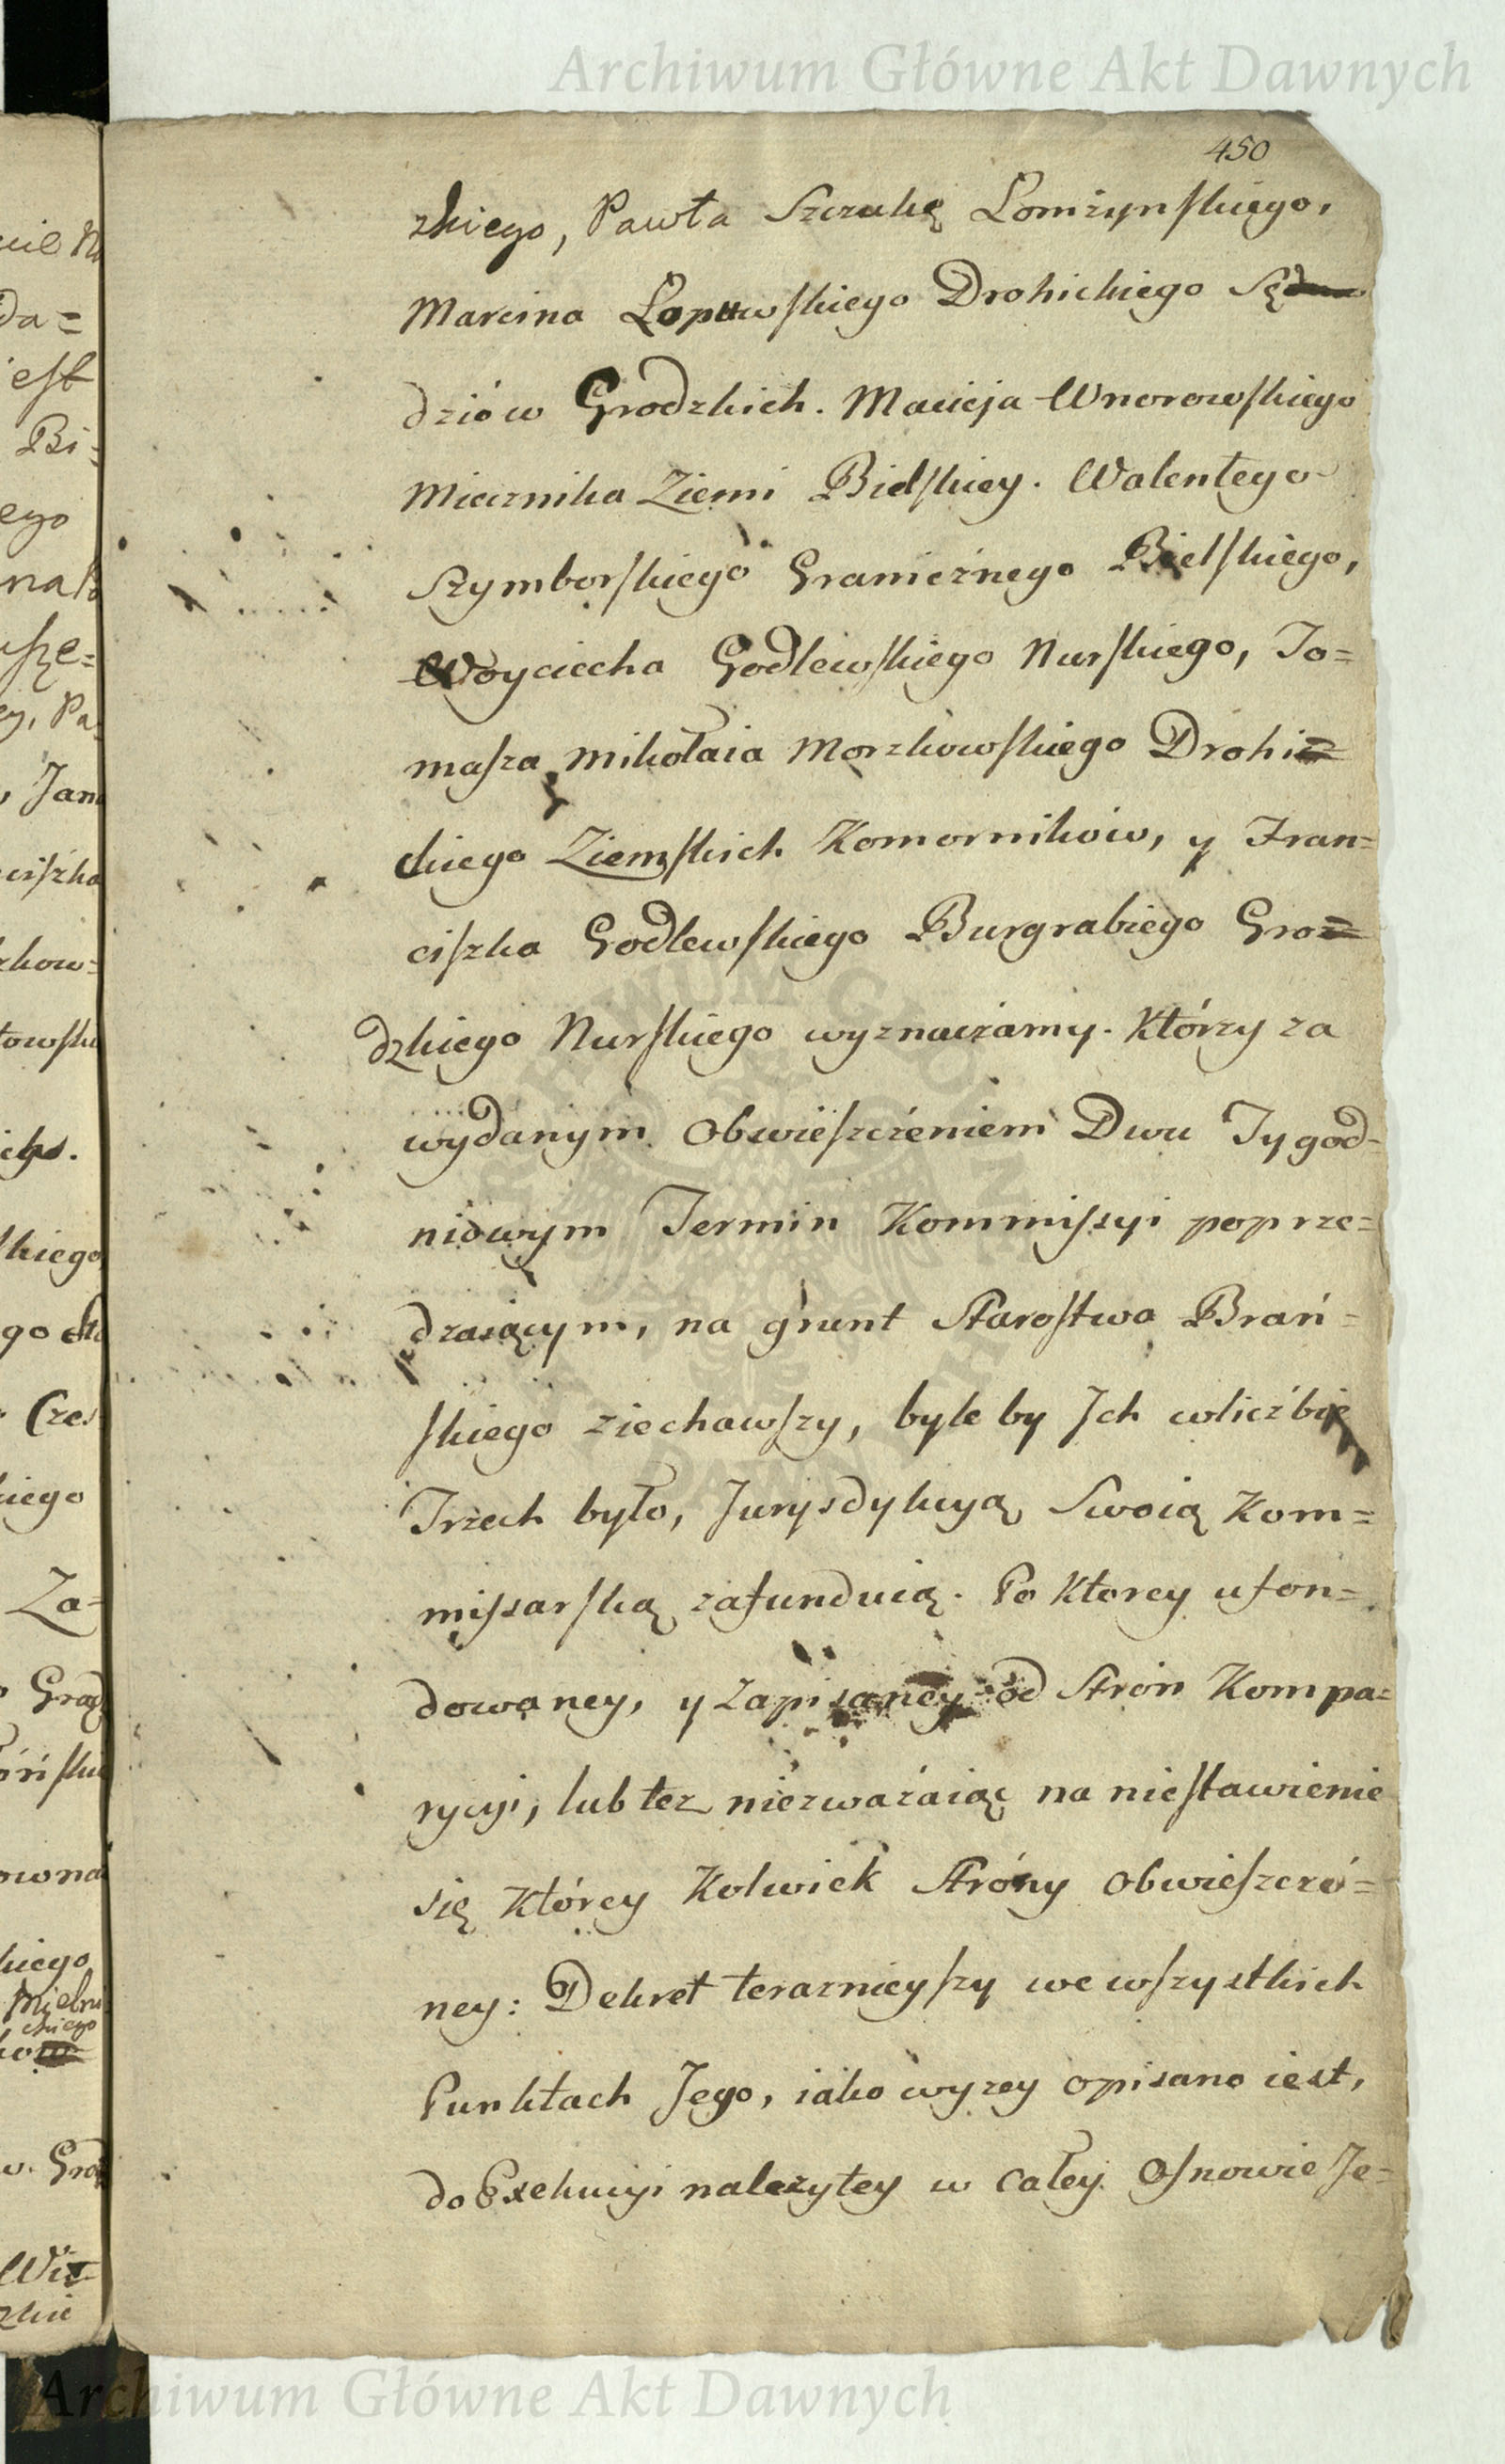 Archiwum Główne Akt Dawnych
450
zkiego, Pawła Szczukę Łomżynskiego,
Marcina Łopuwskiego Drohickiego Sę
dziów Grodzkich. Macieja Wnorowskiego
Miecznika Ziemi Bielskiey. Walentego
Szymborskiego Granicznego Bielskiego,
Woyciecha Godlewskiego Nurskiego, To=
masza Mikołaia Morzkowskiego Drohi=
ckiego Ziemskich Komorników, y Fran=
ciszka Godlewskiego Burgrabiego Gro=
dzkiego Nurskiego wyznaczamy. Którzy za
wydanym Obwieszczeniem Dwu Tygod-
niowym Termin Kommissyi poprze=
dzaiącym, na grunt Starostwa Brań=
skiego ziechawszy, byle by Ich wliczbie
Trzech było, Jurysdykcyą Swoią Kom=
missarską zafunduią. Po Ktorey ufon=
dowaney, y zapisaney od Stron Kompa=
rycyi, lub tez niezwaźaiąc na niestawienie
się Którey Kolwiek Stróny Obwieszczo=
ney: Dekret teraznieyszy we wszystkich
Punktach Jego, iako wyzey opisano iest,
do Exekucyi nalezytey w całey Osnowie Je=
Archiwum Główne Akt Dawnych